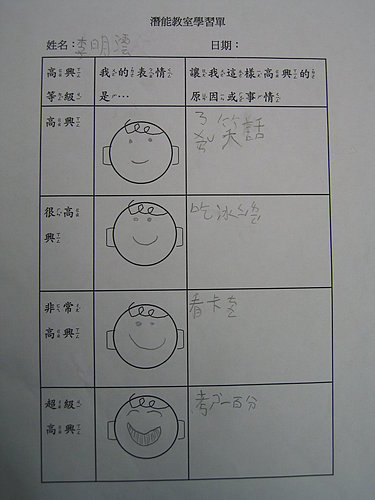 潛能教室學習單
姓名：李明澐 日期：
高興 我的表情 讓我這樣高興的
等級 是… 原因或事情
高興 ㄎㄢˋ笑話
很高
興 吃冰
非常 看卡
高興
超級 考ㄕˋ一百分
高興